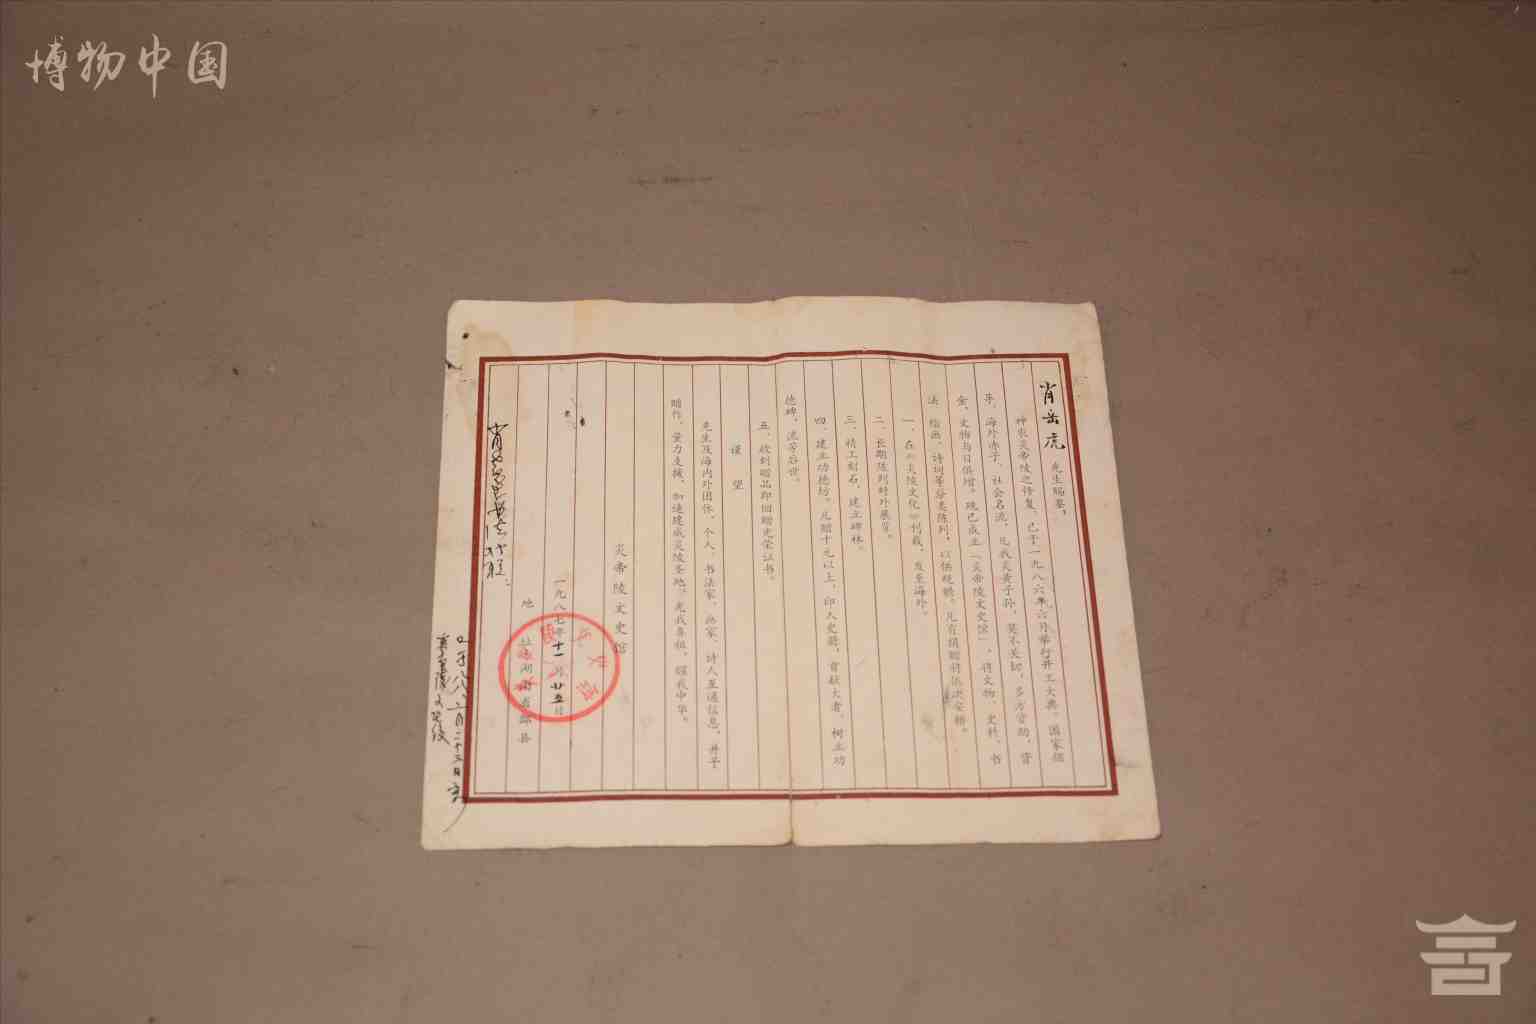 博物中国
肖岳虎 先生赐鉴：
神农炎帝陵之修复，已于一九八六年六月举行开工大典。国家细
乐，海外赤子，社会名流，凡我炎黄子孙，莫不关切，多方资助，资
金、文物与日俱增。现已成立“炎帝陵文史馆”，将文物、史料、书
法、绘画、诗词等分类陈列，以供观瞻。凡有捐赠将依次安排。
一、在《炎陵文化》刊载，发至海外。
二、长期陈列对外展览。
三、精工刻石，建立碑林。
四、建立功德坊。凡赠十元以上，印入史册，贡献大者，树立功
德碑，流芳后世。
五、收到赠品即回赠光荣证书。
谨望
先生及海内外团体、个人、书法家、画家、诗人互通信息，并予
赠作，量力支援，加速建成炎陵圣地，光我鼻祖，耀我中华。
炎帝陵文史馆
一九八七年十一月廿五日
地址：湖南省酃县